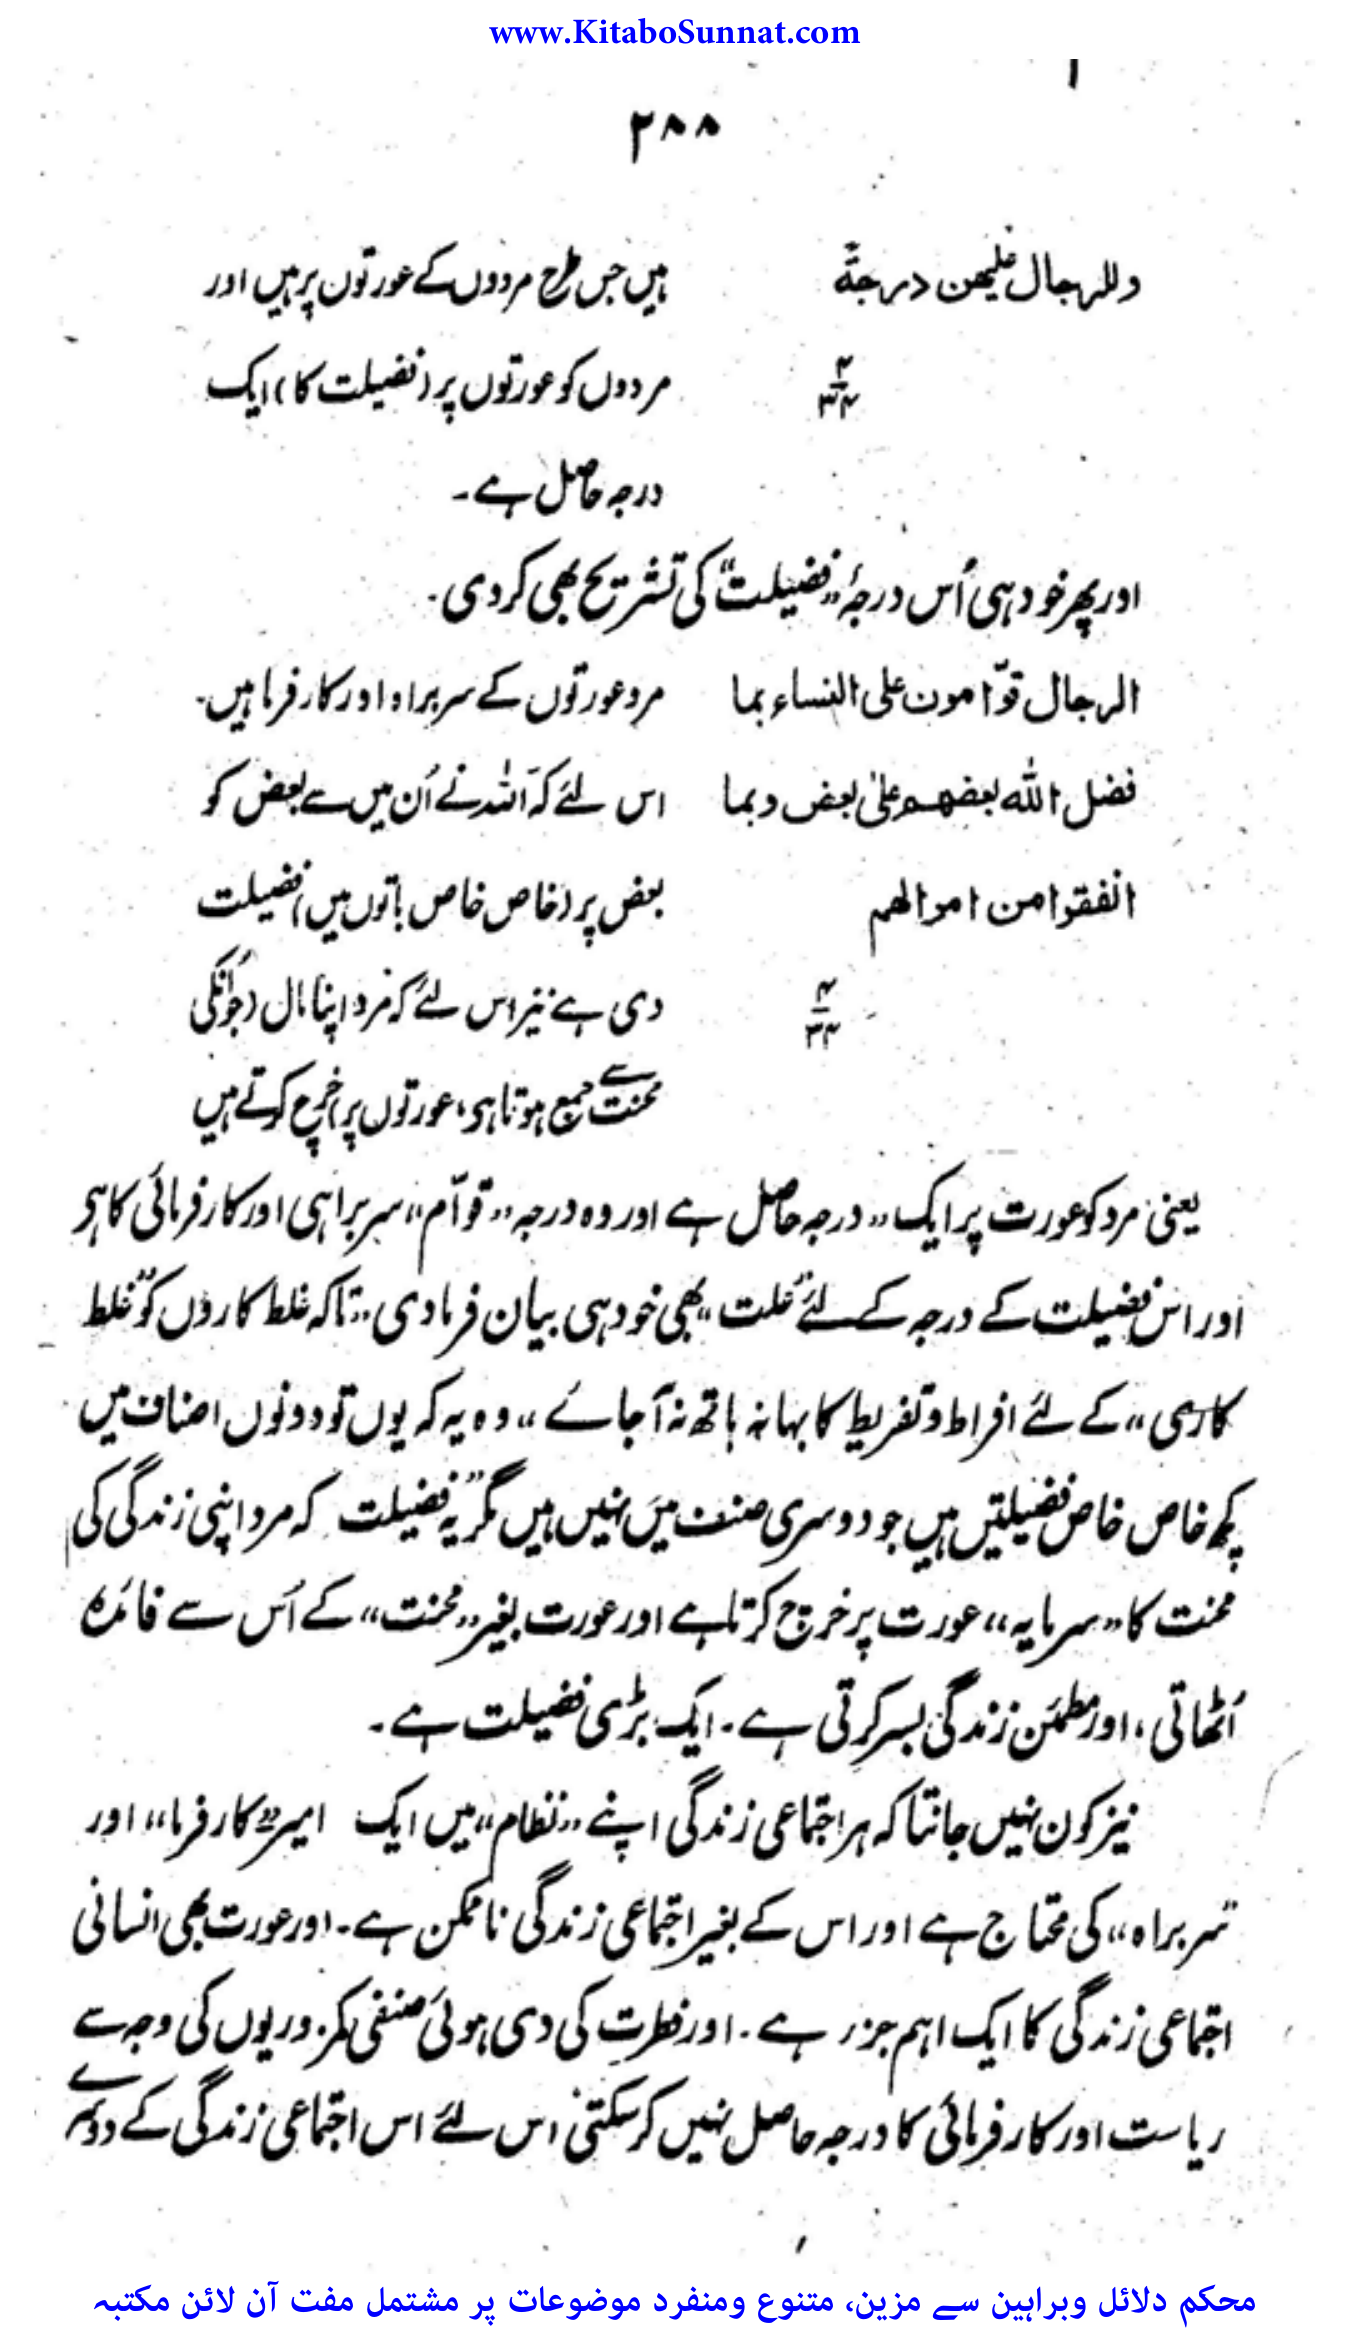 www.KitaboSunnat.com
۲۸۸
وللرجال علیھن درجۃ
ہیں جس طرح مردوں کے عورتوں پر ہیں اور
۴
۳۴
مردوں کو عورتوں پر (فضیلت کا) ایک
درجہ حاصل ہے۔
اور پھر خود ہی اُس درجۂ "فضیلت" کی تشریح بھی کر دی۔
الرجال قوّامون علی النساء بما
مرد عورتوں کے سربراہ اور کارفرما ہیں۔
فضل اللہ بعضھم علیٰ بعض وبما
اس لئے کہ اللہ نے اُن میں سے بعض کو
انفقوا من اموالھم
بعض پر (خاص خاص باتوں میں) فضیلت
۴
۳۴
دی ہے نیز اس لئے کہ مرد اپنا مال (جو اُنکی
محنت سے جمع ہوتا ہی، عورتوں پر) خرچ کرتے ہیں
یعنی مرد کو عورت پر ایک "درجہ حاصل ہے اور وہ درجہ "قوّام" سربراہی اور کارفرمائی کا ہی
اور اس فضیلت کے درجہ کے لئے "علت" بھی خود ہی بیان فرما دی۔ تاکہ غلط کاروں کو "غلط
کاری" کے لئے افراط و تفریط کا بہانہ ہاتھ نہ آجائے" وہ یہ کہ یوں تو دونوں اصناف میں
کچھ خاص خاص فضیلتیں ہیں جو دوسری صنف میں نہیں ہیں مگر "یہ فضیلت کہ مرد اپنی زندگی کی
محنت کا "سرمایہ" عورت پر خرچ کرتا ہے اور عورت بغیر "محنت" کے اُس سے فائدہ
اُٹھاتی، اور مطمئن زندگی بسر کرتی ہے۔ ایک بڑی فضیلت ہے۔
نیز کون نہیں جانتا کہ ہر اجتماعی زندگی اپنے "نظام" میں ایک امیر "کارفرما" اور
سربراہ" کی محتاج ہے اور اس کے بغیر اجتماعی زندگی ناممکن ہے۔ اور عورت بھی انسانی
اجتماعی زندگی کا ایک اہم جزر ہے۔ اور فطرت کی دی ہوئی صنفی کمزوریوں کی وجہ سے
ریاست اور کارفرمائی کا درجہ حاصل نہیں کر سکتی اس لئے اس اجتماعی زندگی کے دوسرے
محکم دلائل وبراہین سے مزین، متنوع ومنفرد موضوعات پر مشتمل مفت آن لائن مکتبہ